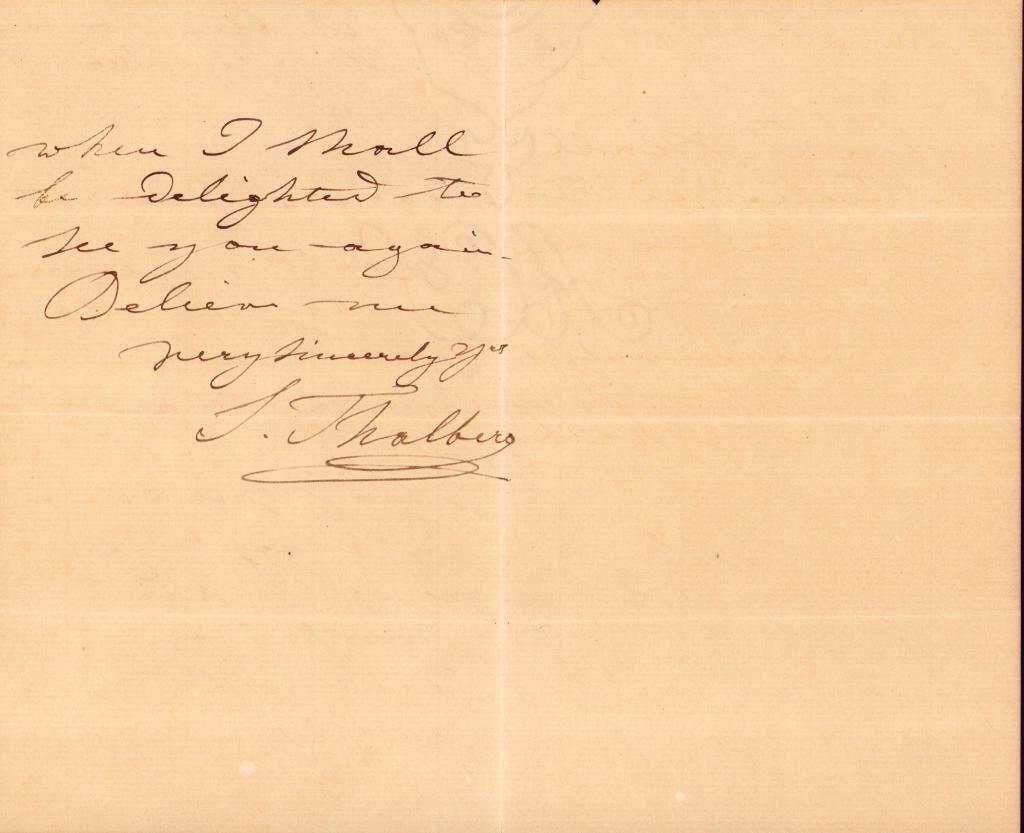 when I shall
be delighted to
see you again.
Believe me
very sincerely yrs
S. Thalberg